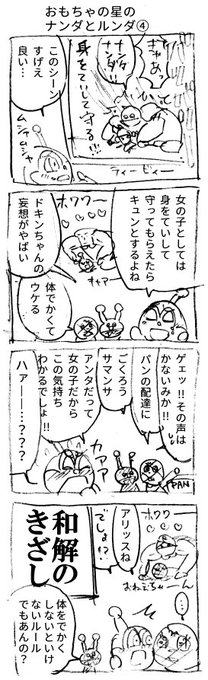 おもちゃの星の
ナンダとルンダ④
ぎゃあ！
ナンダ
ナンダ
身をていして守る!!!
このシーン
すげえ
良い…
ムシャムシャ
ティービィー
女の子としては
身をていして
守ってもらえたら
キュンとするよね
ホワワー
キャアー
ドキンちゃんの
妄想がやばい
体でかくて
ウケる
ゲェッ!!その声は
かないみか!!
パンの配達に
ごくろう
サマンサ
アンタだって
女の子だから
この気持ち
わかるでしょ!!
カアアア
ハァー!:???
PAN
ホワワー
アリッスね
でしょ!?
おねえちゃーん
…
和解の
きざし
体をでかく
しないといけ
ないルール
でもあんの?